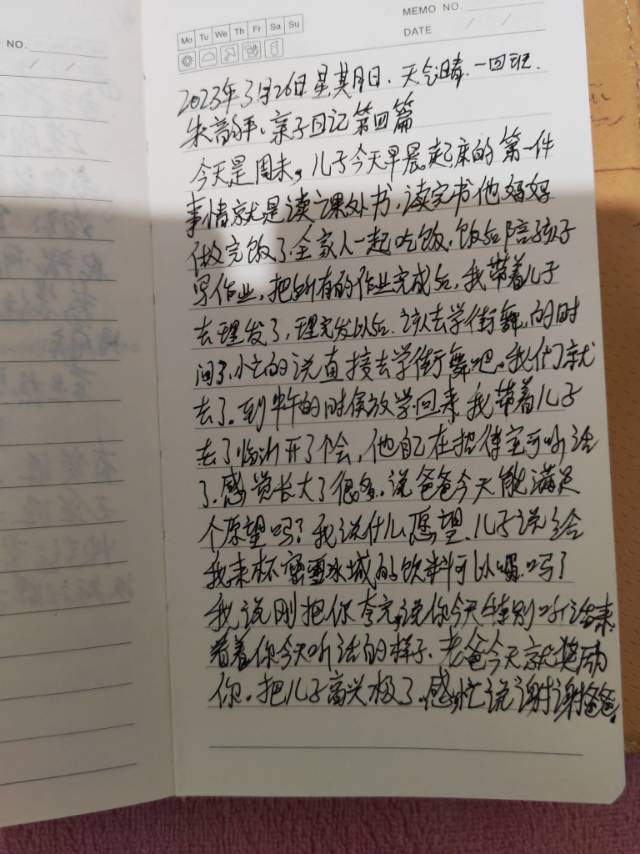 NO.
MEMO NO.
Mo Tu We Th Fr Sa Su
DATE / /
2023年3月26日星期日、天气晴.一四班.
亲子日记第四篇
今天是周末,儿子今天早晨起床的第一件
事情就是读课外书,读完书他妈妈
做完饭了.全家人一起吃饭,饭后陪孩子
写作业,把所有的作业完成后,我带着儿子
去理发了,理完发以后.该去学街舞的时
间了,小忙的说直接去学街舞吧。我们就
去了.到中午的时候放学回来我带着儿子
去了临沂开了个会,他自己在招待室可听话
了.感觉长大了很多.说爸爸今天能满足
个愿望吗?我说什么愿望.儿子说给
我来杯蜜雪冰城的饮料可以喝吗了
我说刚把你夸完,说你今天特别听话来
看着你今天听话的样子.老爸今天就奖励
你.把儿子高兴极了.感忙说谢谢爸爸.